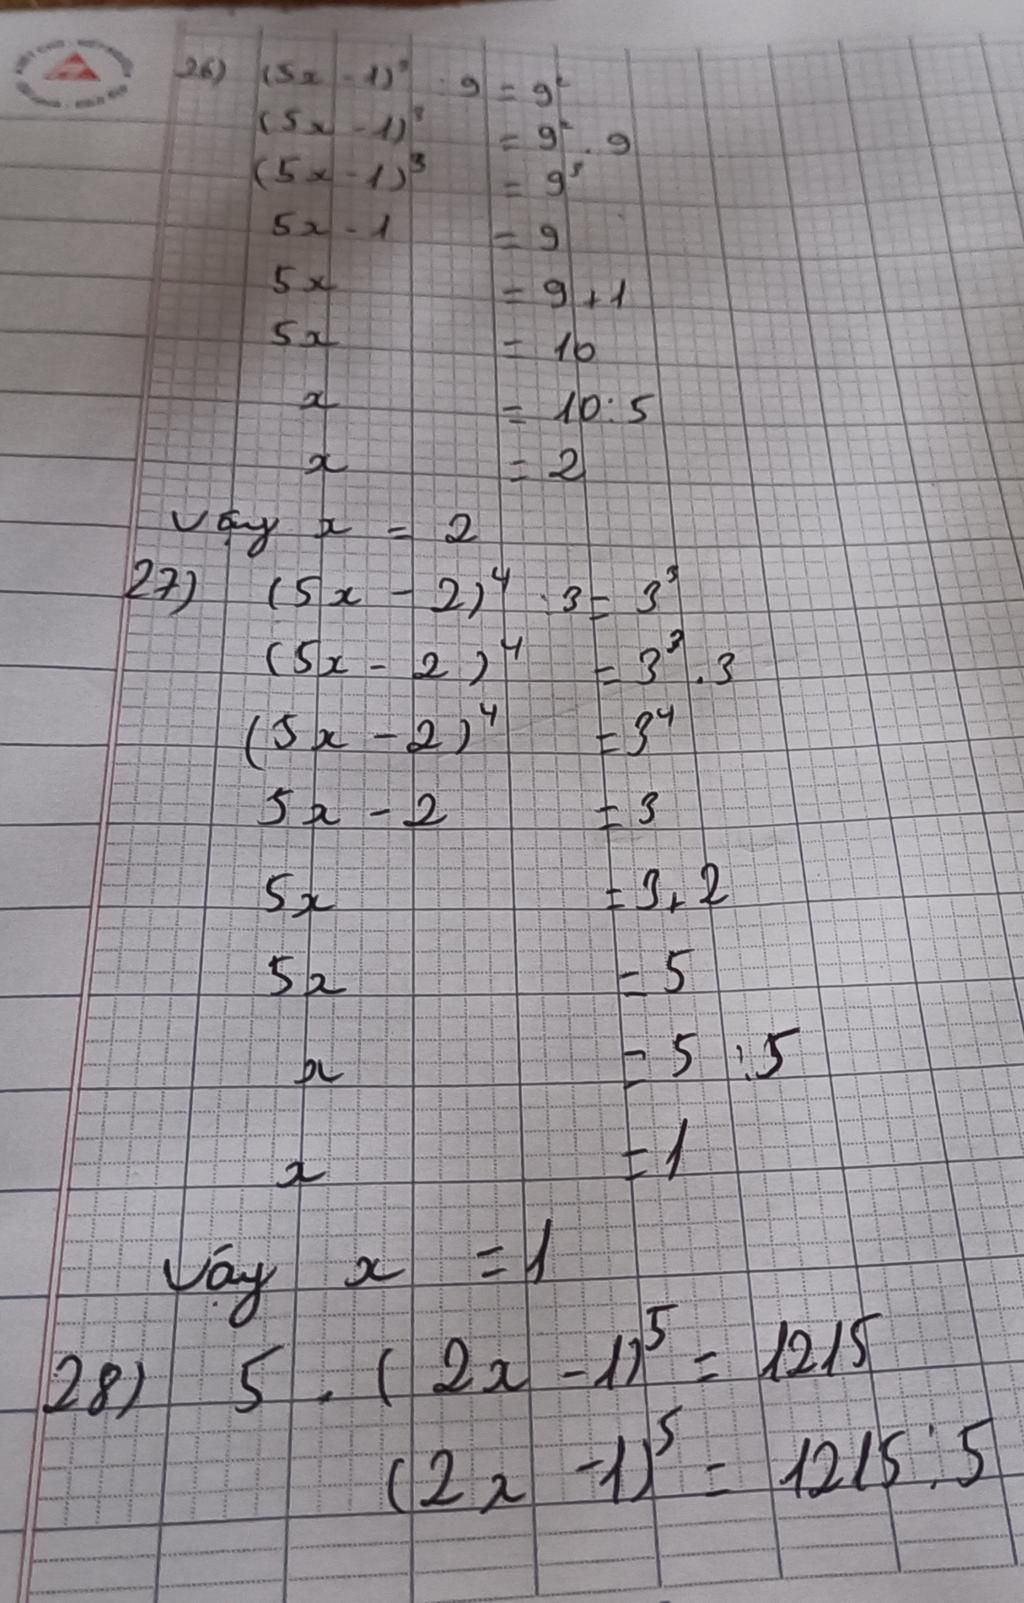 26) (5x - 1)³ : 9 = 9²
(5x - 1)³ = 9² . 9
(5x - 1)³ = 9³
5x - 1 = 9
5x = 9 + 1
5x = 10
x = 10 : 5
x = 2
Vậy x = 2
27) (5x - 2)⁴ : 3 = 3³
(5x - 2)⁴ = 3³ . 3
(5x - 2)⁴ = 3⁴
5x - 2 = 3
5x = 3 + 2
5x = 5
x = 5 : 5
x = 1
Vậy x = 1
28) 5 . (2x - 1)⁵ = 1215
(2x - 1)⁵ = 1215 : 5